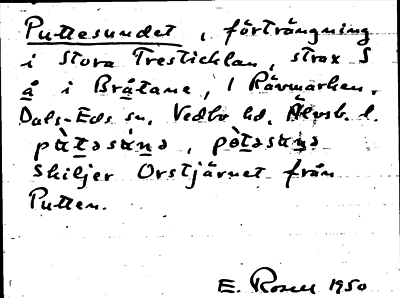 Puttesundet, förträngning
i Stora Tresticklan, strax S
å i Bråtane, i Rävmarken,
Dals-Eds sn, Vedbo hd, Älvsb. l.
Skiljer Orstjärnet från
Putten.
E. Rosell 1950